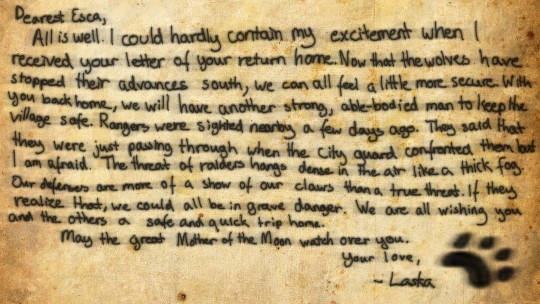 Dearest Esca,
All is well. I could hardly contain my excitement when I
received your letter of your return home. Now that the wolves have
stopped their advances south, we can all feel a little more secure. With
you back home, we will have another strong, able-bodied man to keep the
village safe. Rangers were sighted nearby a few days ago. They said that
they were just passing through when the City guard confronted them but
I am afraid. The threat of raiders hangs dense in the air like a thick fog.
Our defenses are more of a show of our claws than a true threat. If they
realize that, we could all be in grave danger. We are all wishing you
and the others a safe and quick trip home.
May the great Mother of the Moon watch over you.
Your love,
~ Laska